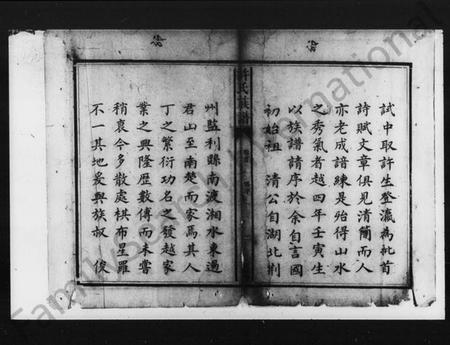 試中取許生登瀛為批首
詩賦文章俱見清簡而人
亦老成諳練是殆得山水
之秀氣者越四年壬寅生
以族譜請序於余自言國
初始祖 清公自湖北荆
許氏族譜
州監利縣南渡湘水東過
君山至南楚而家焉其人
丁之繁衍功名之發越家
業之興隆歷數傳而未嘗
稍衰今多散處棋布星羅
不一其地爰興族叔 俊